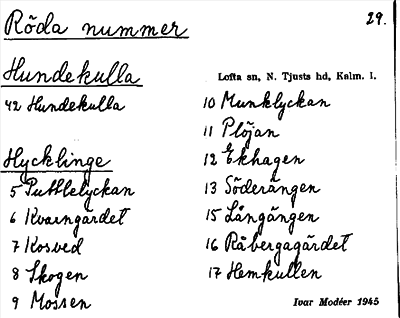 Röda nummer
29.
Hundekulla
Lofta sn, N. Tjusts hd, Kalm. l.
42 Hundekulla
Hycklinge
5 Puttlelyckan
6 Kvarngärdet
7 Kosved
8 Skogen
9 Mossen
10 Munklyckan
11 Plöjan
12 Ekhagen
13 Söderängen
15 Långängen
16 Råbergagärdet
17 Hemkullen
Ivar Modéer 1945